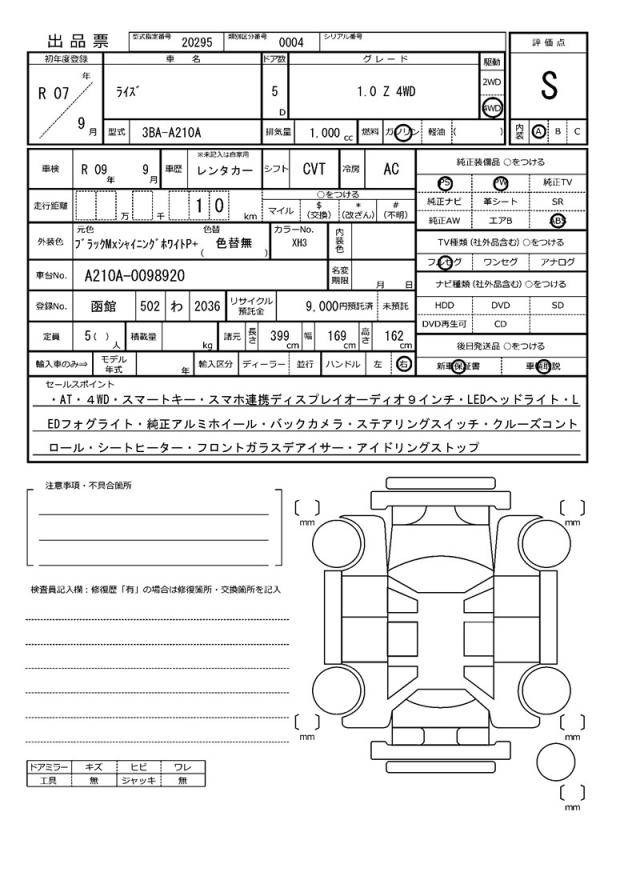 出品票 型式指定番号 20295 類別区分番号 0004 シリアル番号
評価点
S
初年度登録 車名 ドア数 グレード 駆動
R 07 年 9 月 ﾗｲｽﾞ 5 D 1.0 Z 4WD 2WD 4WD
型式 3BA-A210A 排気量 1.000 cc 燃料 ガソリン 軽油 ( )
内装 A B C
車検 R 09 年 9 月 車歴 ※未記入は自家用 レンタカー シフト CVT 冷房 AC
走行距離 万 千 1 0 km ○をつける マイル $ (交換) * (改ざん) # (不明)
外装色 元色 ﾌﾞﾗｯｸMxｼｬｲﾆﾝｸﾞﾎﾜｲﾄP+ 色替 ( 色替無 ) カラーNo. XH3 内装色
車台No. A210A-0098920 名変期限 月 日
登録No. 函館 502 わ 2036 リサイクル預託金 9,000円預託済 未預託
定員 5 ( ) 人 積載量 kg 諸元 長さ 399 cm 幅 169 cm 高さ 162 cm
輸入車のみ⇒ モデル年式 年 輸入区分 ディーラー 並行 ハンドル 左 右
純正装備品 ○をつける
PS PW 純正TV
純正ナビ 革シート SR
純正AW エアB ABS
TV種類 (社外品含む) ○をつける
フルセグ ワンセグ アナログ
ナビ種類 (社外品含む) ○をつける
HDD DVD SD
DVD再生可 CD
後日発送品 ○をつける
新車保証書 車輌取説
セールスポイント
・AT・４WD・スマートキー・スマホ連携ディスプレイオーディオ９インチ・LEDヘッドライト・L
EDフォグライト・純正アルミホイール・バックカメラ・ステアリングスイッチ・クルーズコント
ロール・シートヒーター・フロントガラスデアイサー・アイドリングストップ
注意事項・不具合箇所
検査員記入欄：修復歴「有」の場合は修復箇所・交換箇所を記入
ドアミラー キズ ヒビ ワレ
工具 無 ジャッキ 無
mm
mm
mm
mm
mm